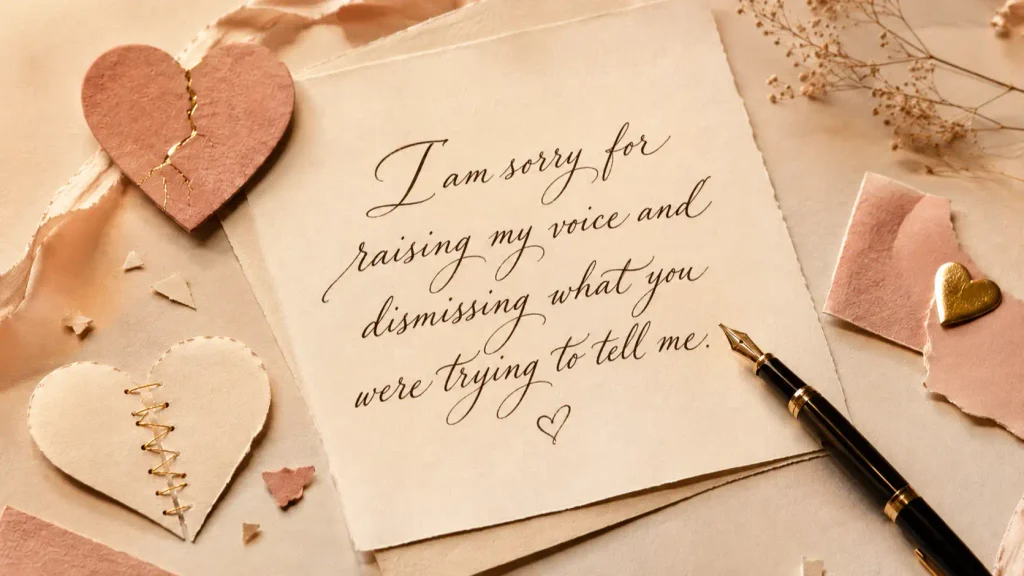 I am sorry for
raising my voice and
dismissing what you
were trying to tell me.